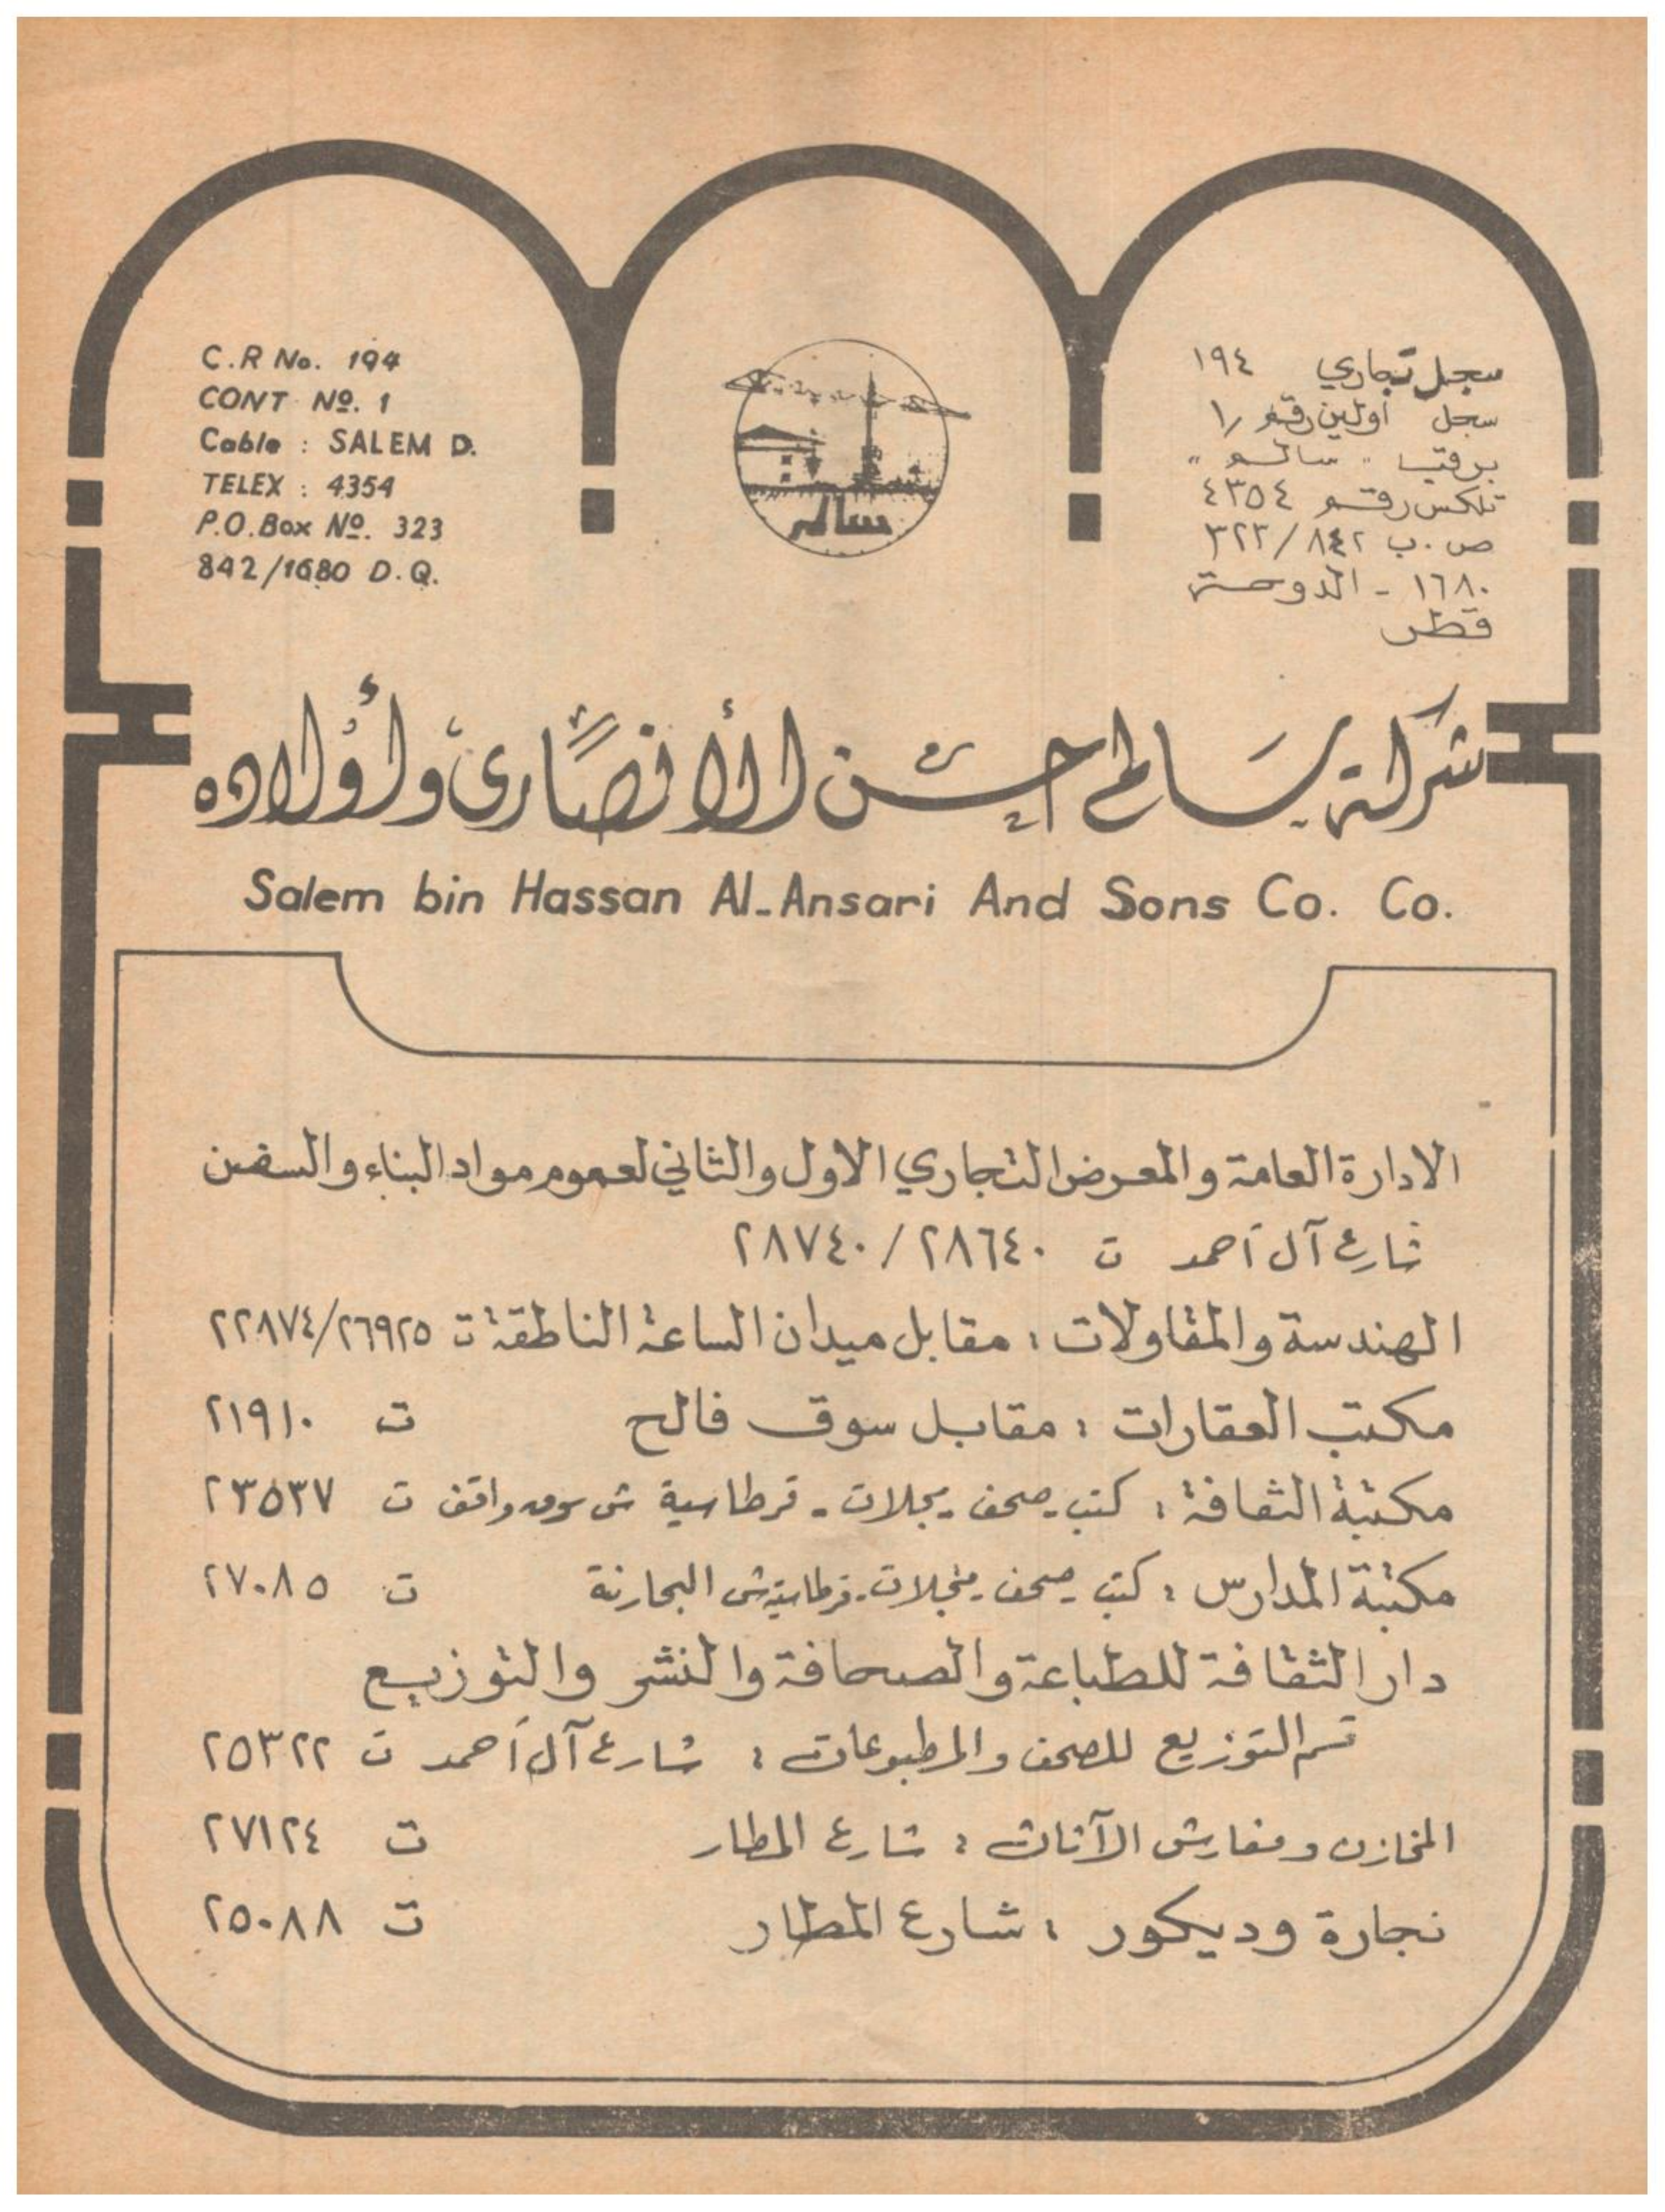 C.R No. 194
CONT Nº. 1
Cable : SALEM D.
TELEX : 4354
P.O.Box Nº. 323
842/1680 D.Q.
سالم
سجل تجاري ١٩٤
سجل اولين رقم ١/
برقيا " سالم "
تلكس رقم ٤٣٥٤
ص.ب ٣٢٣/٨٤٢
١٦٨٠ - الدوحة
قطر
شركة سالم حسن الأنصاري وأولاده
Salem bin Hassan Al-Ansari And Sons Co. Co.
الادارة العامة والمعرض التجاري الاول والثاني لعموم مواد البناء والسفن
شارع آل أحمد ت ٢٨٧٤٠/٢٨٦٤٠
الهندسة والمقاولات : مقابل ميدان الساعة الناطقة ت ٢٢٨٧٤/٢٦٩٢٥
مكتب العقارات : مقابل سوق فالح ت ٢١٩١٠
مكتبة الثقافة : كتب - صحف - مجلات - قرطاسية ش سوق واقف ت ٢٣٥٣٧
مكتبة المدارس : كتب - صحف - مجلات - قرطاسية ش البحارنة ت ٢٧٠٨٥
دار الثقافة للطباعة والصحافة والنشر والتوزيع
قسم التوزيع للصحف والمطبوعات : شارع آل أحمد ت ٢٥٣٢٢
المخازن ومفارش الآثاث : شارع المطار ت ٢٧١٢٤
نجارة وديكور : شارع المطار ت ٢٥٠٨٨